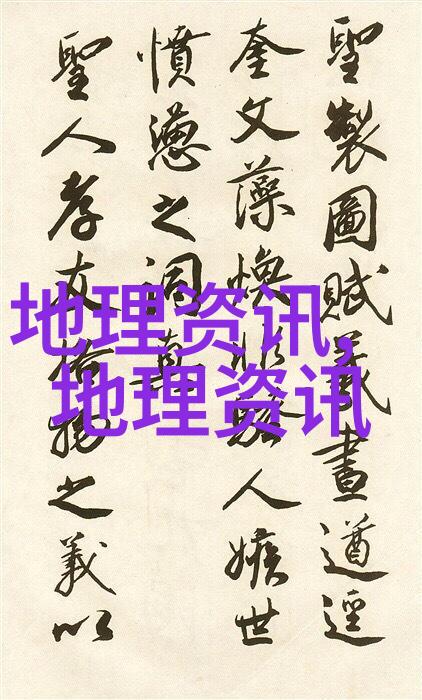 聖製圖賦義畫遒逕
奎文藻煥非騷人嫉世
憤懣之詞
聖人孝友之義以
地理资讯,
地理资讯